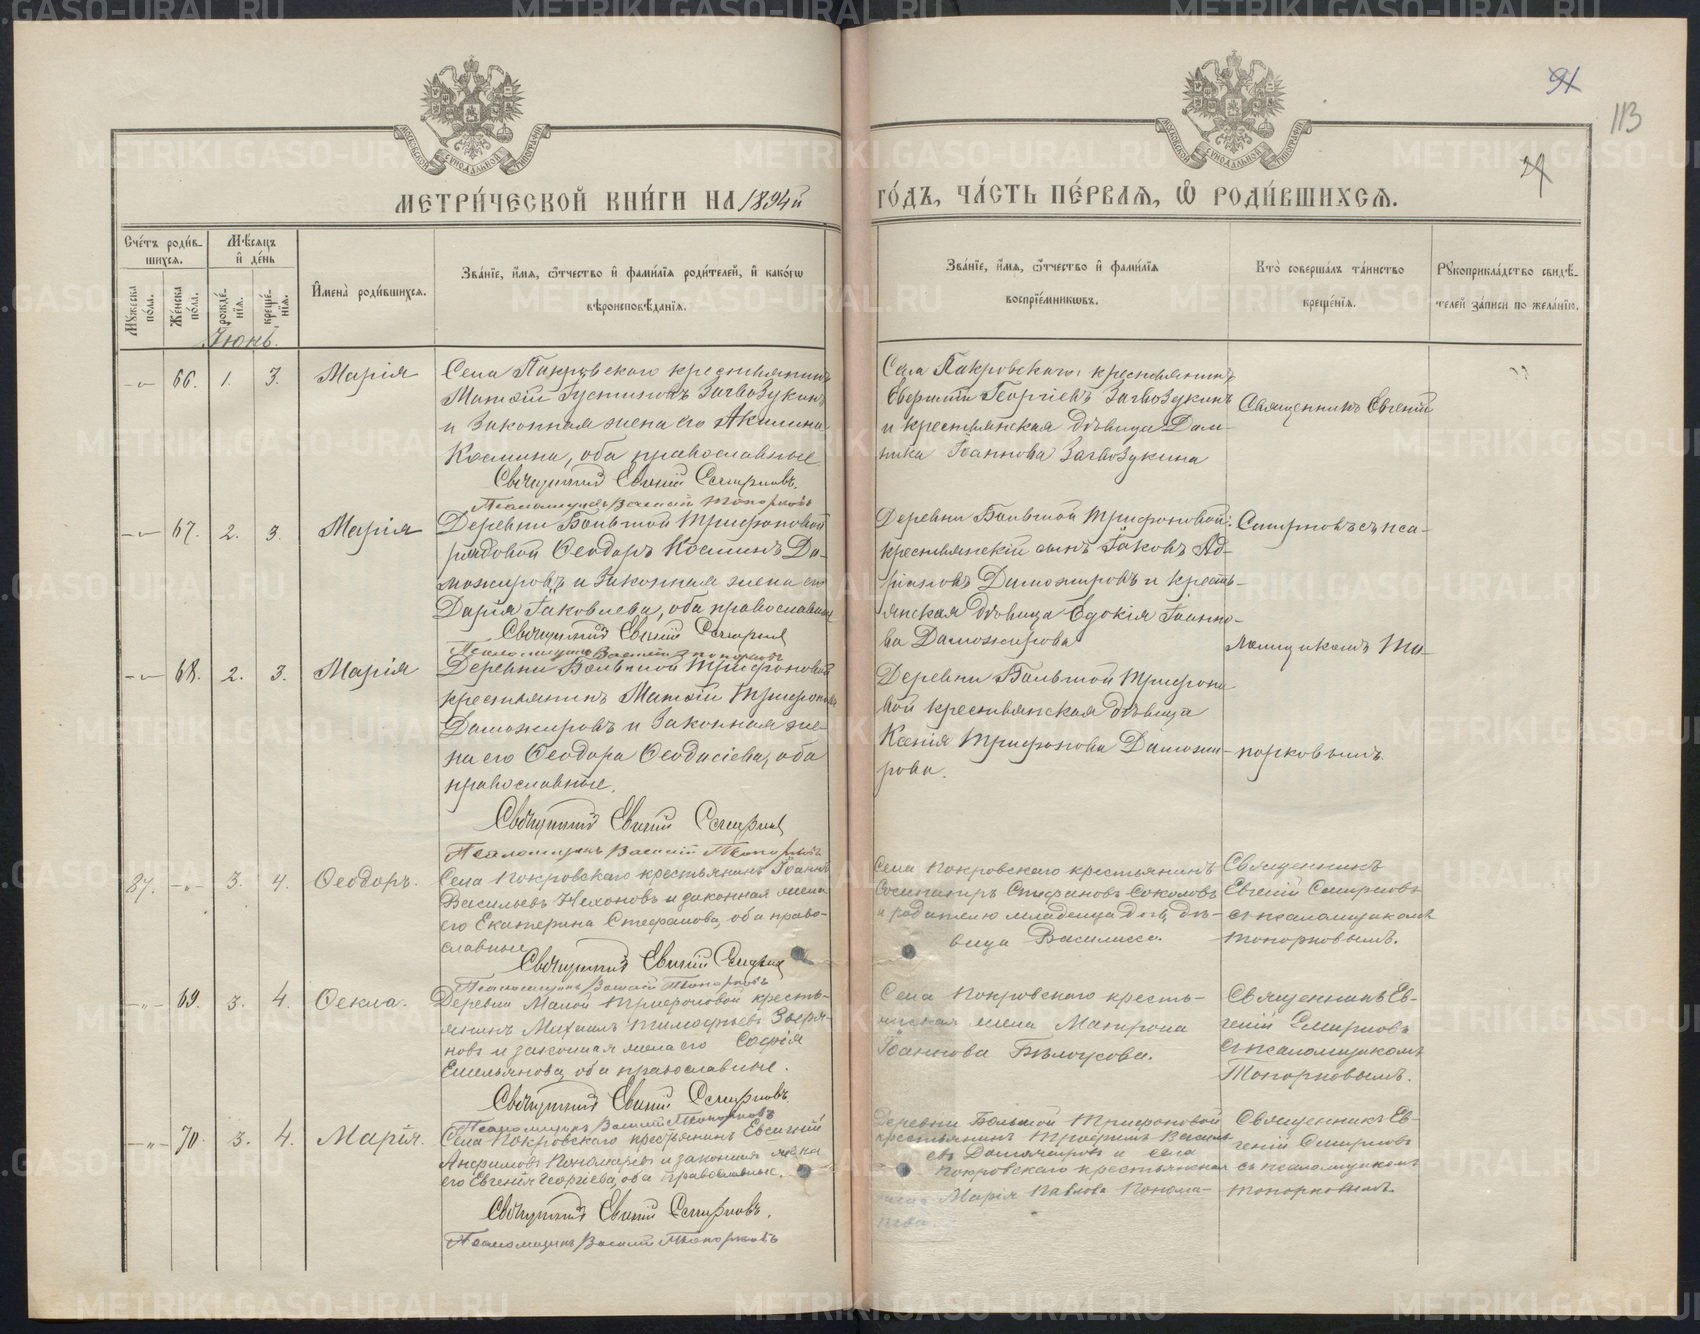 91
113
27
МОСКОВСКОЙ СѴНОДАЛЬНОЙ ТИПОГРАФИИ
МОСКОВСКОЙ СѴНОДАЛЬНОЙ ТИПОГРАФИИ
МЕТРИ́ЧЕСКОЙ КНИ́ГИ НА 1894й
ГО́ДЪ, ЧА́СТЬ ПЕ́РВАЯ, Ѿ РОДИ́ВШИХСЯ.
Сче́тъ роди́вшихся.
Мужеска по́ла.
Же́нска по́ла.
Мѣ́сяцъ и де́нь
рожде́нія.
креще́нія.
Имена̀ роди́вшихся.
Зва́ніе, и́мя, ѻ́тчество и фами́лія роди́телей, и како́гѡ
вѣроисповѣ́данія.
Зва́ніе, и́мя, ѻ́тчество и фами́лія
воспріе́мниковъ.
Кто̀ соверша́лъ та́инство
креще́нія.
Рукоприкла́дство свидѣ́телей за́писи по жела́нію.
Іюнь.
66. 1. 3. Марія
Села Покровскаго крестьянинъ
Матѳій Іустиновъ Загвоздкинъ
и законная жена его Акилина
Космина, оба православные
Священникъ Евгений Смирновъ.
Псаломщикъ Василій Топорковъ
Села Покровскаго, крестьянинъ
Георгіевъ Загвоздкинъ
и крестьянская дѣвица Дом-
ника Іоаннова Загвоздкина
Священникъ Евгеній
67. 2. 3. Марія
Деревни Большой Трифоновой
рядовой Ѳеодоръ Косминъ До-
можировъ и законная жена его
Дарія Іаковлева, оба православные
Священникъ Евгений Смирновъ
Псаломщикъ Василій Топорковъ
Деревни Большой Трифоновой
крестьянскій сынъ Іаковъ Ад-
ріановъ Доможировъ и кресть-
янская дѣвица Евдокія Іоанно-
ва Доможирова
Смирновъ съ пса-
ломщикомъ То-
68. 2. 3. Марія
Деревни Большой Трифоновой
крестьянинъ Матѳій Трифоновъ
Доможировъ и законная же-
на его Ѳеодора Ѳеодосіева, оба
православные.
Священникъ Евгений Смирновъ
Псаломщикъ Василій Топорковъ
Деревни Большой Трифоно
вой крестьянская дѣвица
Ксенія Трифонова Доможи-
рова.
порковымъ.
87. 3. 4. Ѳеодоръ.
Села Покровскаго крестьянинъ Іоаннъ
Васильевъ Нехоновъ и законная жена
его Екатерина Стефанова, оба право-
славные
Священникъ Евгений Смирновъ
Псаломщикъ Василій Топорковъ
Села Покровскаго крестьянинъ
Сосипатръ Стефановъ Соколовъ
и родителю младенца дочь, дѣ-
вица Василисса.
Священникъ
Евгеній Смирновъ
съ псаломщикомъ
Топорковымъ.
69. 3. 4. Ѳекла.
Деревни Малой Трифоновой кресть-
янинъ Михаилъ Тимофеевъ Зверя-
новъ и законная жена его Софія
Емельянова, оба православные.
Священникъ Евгений Смирновъ
Псаломщикъ Василій Топорковъ
Села Покровскаго кресть-
янская жена Матрона
Іоаннова Бѣлоусова.
Священникъ Ев-
геній Смирновъ
съ псаломщикомъ
Топорковымъ.
70. 3. 4. Марія.
Села Покровскаго крестьянинъ Евсигній
Анфимовъ Пономаревъ и законная жена
его Евгенія Георгіева, оба православные.
Священникъ Евгений Смирновъ.
Псаломщикъ Василій Топорковъ
Деревни Большой Трифоновой
крестьянинъ Трофимъ Василь-
евъ Доможировъ и села
Покровскаго крестьянская
жена Марія Павлова Понома-
рева.
Священникъ Ев-
геній Смирновъ
съ псаломщикомъ
Топорковымъ.
METRIKI.GASO-URAL.RU